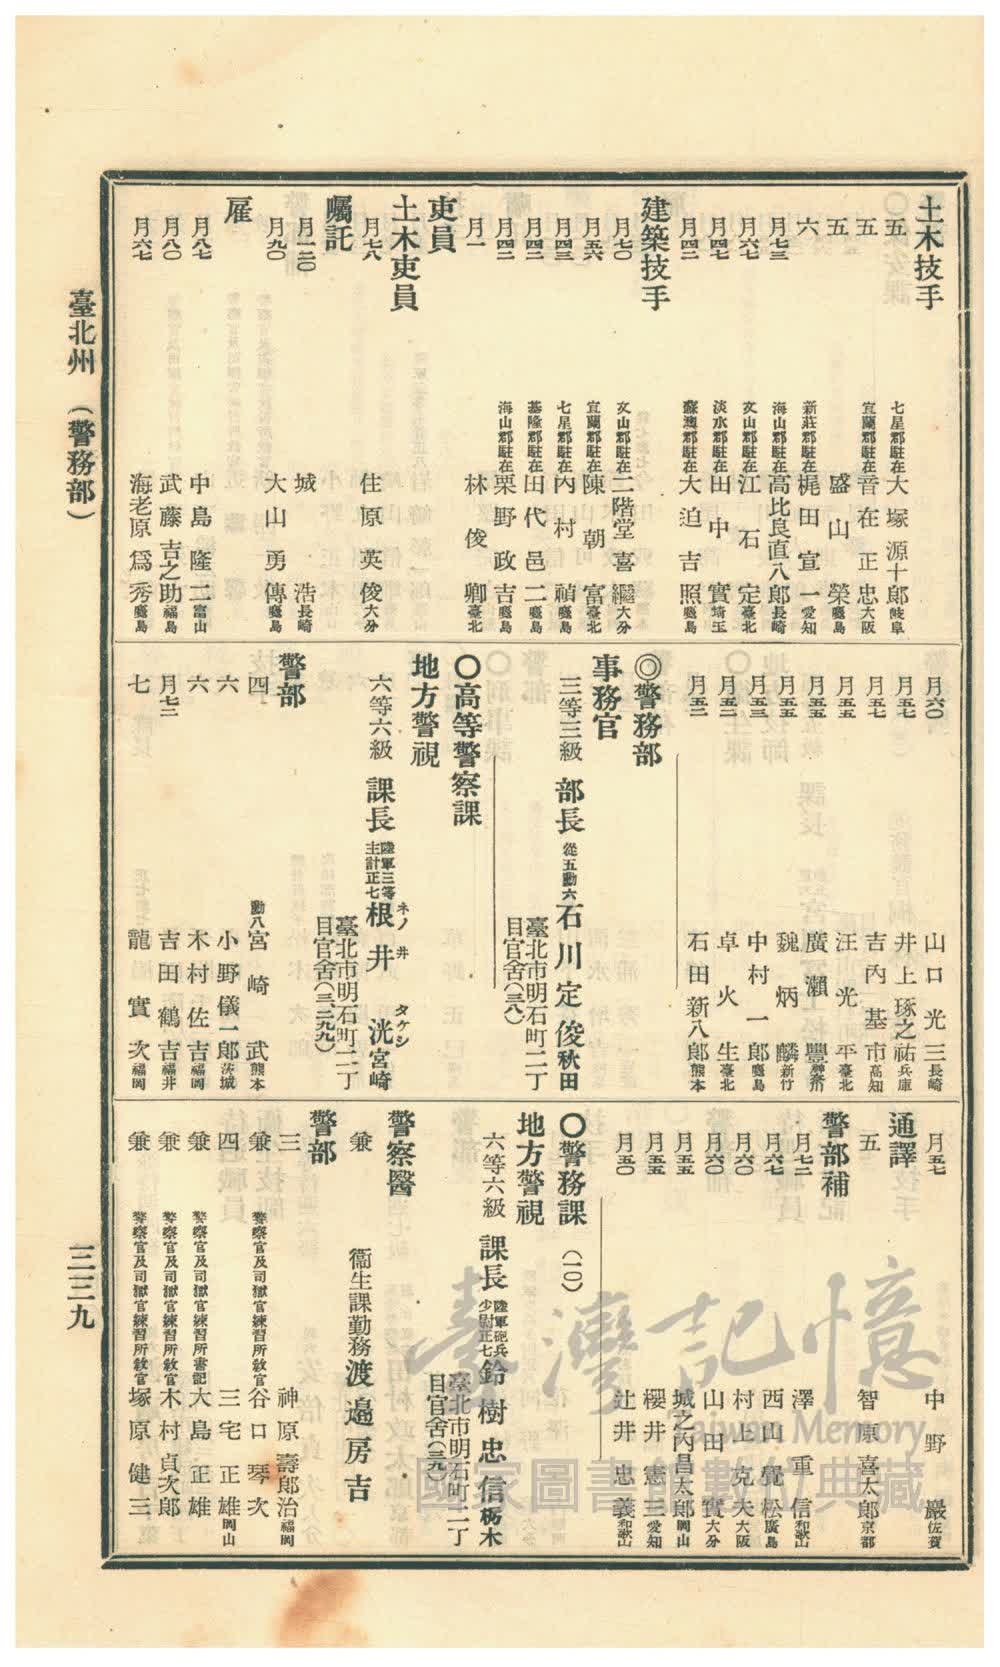 土木技手
五 七星郡駐在 大塚源十郎 岐阜
五 宜蘭郡駐在 音在正忠 大阪
五 盛山榮 鹿島
六 新莊郡駐在 梶田宣一 愛知
月七三 海山郡駐在 高比良直八郎 長崎
月六七 文山郡駐在 江石定 臺北
月四七 淡水郡駐在 田中實 埼玉
月四二 蘇澳郡駐在 大迫吉照 鹿島
建築技手
月七〇 文山郡駐在 二階堂喜繼 大分
月五六 宜蘭郡駐在 陳朝富 臺北
月四三 七星郡駐在 内村禎 鹿島
月四二 基隆郡駐在 田代邑二 鹿島
月四二 海山郡駐在 栗野政吉 鹿島
月一 林俊卿 臺北
吏員
土木吏員
月七八 住原英俊 大分
囑託
月一二〇 城浩 長崎
月九〇 大山勇傳 鹿島
雇
月八七 中島隆二 富山
月八〇 武藤吉之助 福島
月六七 海老原爲秀 鹿島
月六〇 山口光三 長崎
月五七 井上琢之祐 兵庫
月五七 吉内基市 高知
月五五 汪光平 臺北
月五五 廣瀨豐
月五五 魏炳麟 新竹
月五三 中村一郎 鹿島
月五二 卓火生 臺北
月五二 石田新八郎 熊本
◎警務部
事務官
三等三級 部長 從五勳六 石川定俊 秋田
臺北市明石町二丁
目官舍(三八)
〇高等警察課
地方警視
六等六級 課長 陸軍三等主計正七 根井洸 宮崎
ネノ井 タケシ
臺北市明石町二丁
目官舍(三二九九)
警部
四 勳八 宮崎武 熊本
六 小野儀一郎 茨城
六 木村佐吉 福岡
月七二 吉田鶴吉 福井
七 龍實次 福岡
月五七 中野巖 佐賀
通譯
五 智原喜太郎 京都
警部補
月七二 澤重信 和歌山
月六七 西山覺松 廣島
月六〇 村上克夫 大阪
月六〇 山田實 大分
月五五 城之内昌太郎 岡山
月五五 櫻井憲三 愛知
月五〇 辻井忠義 和歌山
〇警務課 (一〇)
地方警視
六等六級 課長 陸軍砲兵少尉正七 鈴樹忠信 栃木
臺北市明石町二丁
目官舍(三九)
警察醫
兼 衞生課勤務 渡邉房吉
警部
三 神原壽郎治 福岡
兼 警察官及司獄官練習所敎官 谷口琴次
四 三宅正雄 岡山
兼 警察官及司獄官練習所書記 大島正雄
兼 警察官及司獄官練習所敎官 木村貞次郎
兼 警察官及司獄官練習所敎官 塚原健三
臺北州 (警務部)
三三九
臺灣記憶
Taiwan Memory
國家圖書館數位典藏